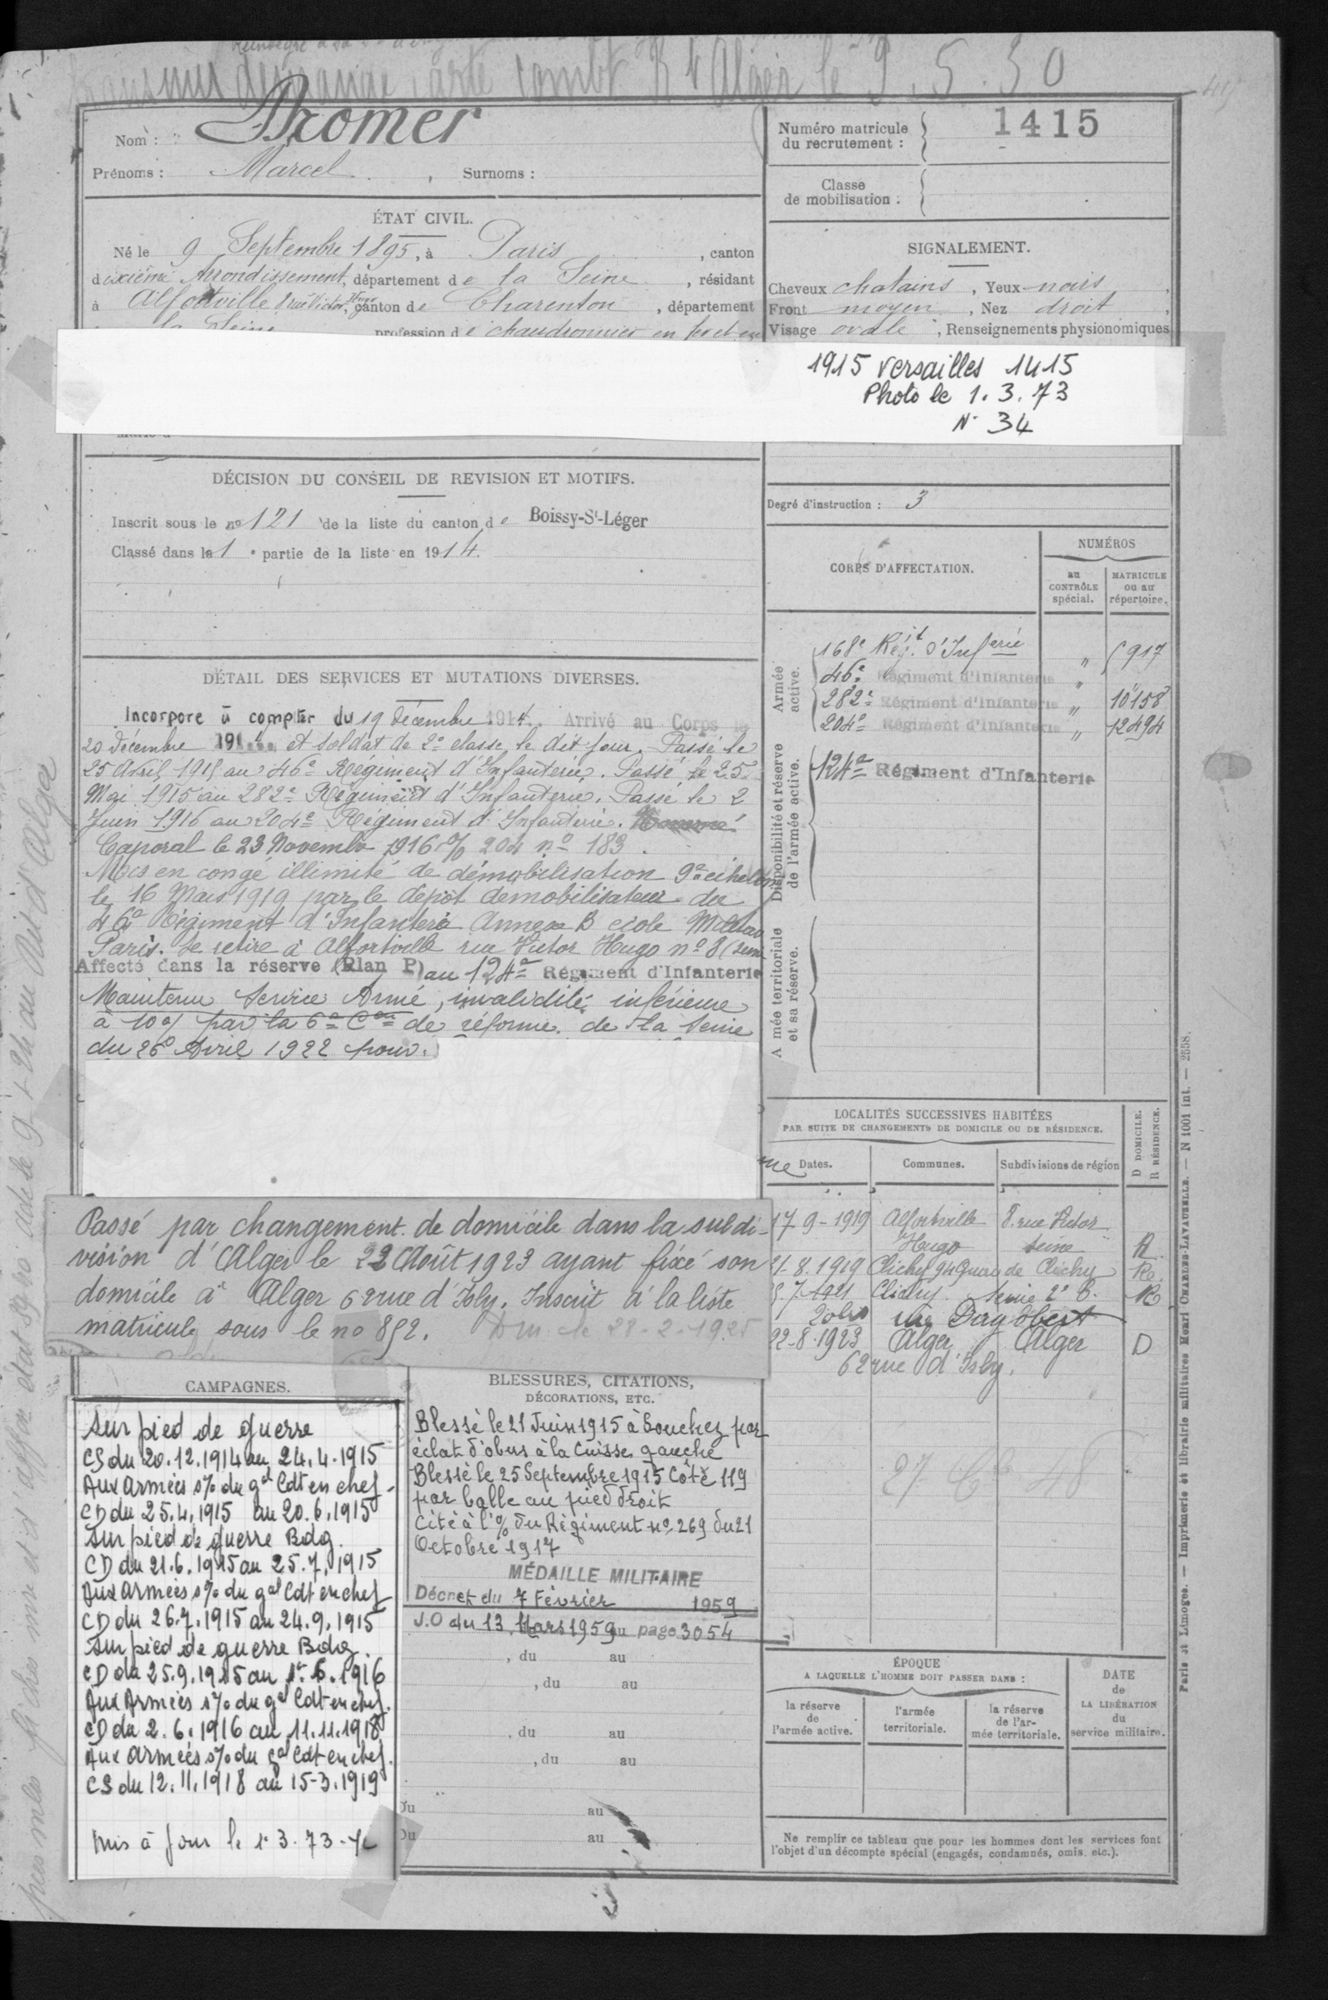 transmis demande carte combt R 4 Alger le 9.5.30
Nom : Promer
Prénoms : Marcel , Surnoms :
ÉTAT CIVIL.
Né le 9 Septembre 1895, à Paris , canton
dixième Arrondissement, département de la Seine , résidant
à Alfortville 8 rue Victor Hugo, canton de Charenton , département
la Seine profession de chaudronnier en fer et en
DÉCISION DU CONSEIL DE REVISION ET MOTIFS.
Inscrit sous le no 121 de la liste du canton de Boissy-St-Léger
Classé dans la 1e partie de la liste en 1914.
DÉTAIL DES SERVICES ET MUTATIONS DIVERSES.
Incorporé à compter du 19 décembre 1914. Arrivé au Corps le
20 décembre 1914 et soldat de 2e classe le dit jour. Passé le
25 Avril 1915 au 46e Régiment d'Infanterie. Passé le 25
Mai 1915 au 282e Régiment d'Infanterie. Passé le 2
Juin 1916 au 204e Régiment d'Infanterie. Nommé
Caporal le 23 Novembre 1916 o/o 204 no 183.
Mis en congé illimité de démobilisation 9e échelon
le 16 Mars 1919 par le dépôt démobilisateur du
46e Régiment d'Infanterie Annexe B école Militaire
Paris. Se retire à Alfortville rue Victor Hugo no 8 (Seine
Affecté dans la réserve (Plan P) au 124e Régiment d'Infanterie
Maintenu Service Armé, invalidité inférieure
à 10% par la 6e Con de réforme de la Seine
du 26 Avril 1922 pour.
Passé par changement de domicile dans la subdi-
vision d'Alger le 22 Août 1923 ayant fixé son
domicile à Alger 62 rue d'Isly. Inscrit à la liste
matricule sous le no 852. Dm. le 28-2-1925
CAMPAGNES.
Sur pied de guerre
CS du 20.12.1914 au 24.4.1915
Aux Armées s/o du gal Cdt en chef
CD du 25.4.1915 au 20.6.1915
Sur pied de guerre Bdg.
CD du 21.6.1915 au 25.7.1915
Aux Armées s/o du gal Cdt en chef
CD du 26.7.1915 au 24.9.1915
Sur pied de guerre Bdg.
CD du 25.9.1915 au 1er.6.1916
Aux Armées s/o du gal Cdt en chef.
CD du 2.6.1916 au 11.11.1918
Aux Armées s/o du gal Cdt en chef.
CS du 12.11.1918 au 15-3.1919
Mis à jour le 1.3.73
BLESSURES, CITATIONS,
DÉCORATIONS, ETC.
Blessé le 21 Juin 1915 à Souchez par
éclat d'obus à la cuisse gauche
Blessé le 25 Septembre 1915 Côte 119
par balle au pied droit
Cité à l'o/o du Régiment no 269 du 21
Octobre 1917
MÉDAILLE MILITAIRE
Décret du 7 Février 1959
J.O du 13 Mars 1959 page 3054
, du au
, du au
, du au
, du au
Du au
Du au
Numéro matricule
du recrutement : 1415
Classe
de mobilisation :
SIGNALEMENT.
Cheveux chatains , Yeux noirs ,
Front moyen , Nez droit ,
Visage ovale , Renseignements physionomiques
1915 Versailles 1415
Photo le 1.3.73
N° 34
Degré d'instruction : 3
CORPS D'AFFECTATION.
NUMÉROS
au
CONTRÔLE
spécial.
MATRICULE
ou au
répertoire.
Armée
active.
168e Régt d'Inferie " 917
46e Régiment d'Infanterie "
282e Régiment d'Infanterie " 10158
204e Régiment d'Infanterie " 12494
Disponibilité et réserve
de l'armée active.
124e Régiment d'Infanterie
Armée territoriale
et sa réserve.
LOCALITÉS SUCCESSIVES HABITÉES
PAR SUITE DE CHANGEMENTS DE DOMICILE OU DE RÉSIDENCE.
Dates.
Communes.
Subdivisions de région
D DOMICILE.
R RÉSIDENCE.
17-9-1919 Alfortville 8 rue Victor
Hugo Seine R
8.1919 Clichy 94 Quai de Clichy Re
7-1921 Clichy Seine 2e B. R
20 bis rue Dagobert
22-8-1923 Alger Alger D
62 rue d'Isly.
ÉPOQUE
A LAQUELLE L'HOMME DOIT PASSER DANS :
la réserve
de
l'armée active.
l'armée
territoriale.
la réserve
de l'ar-
mée territoriale.
DATE
de
LA LIBÉRATION
du
service militaire.
Ne remplir ce tableau que pour les hommes dont les services font
l'objet d'un décompte spécial (engagés, condamnés, omis, etc.).
Paris et Limoges. — Imprimerie et librairie militaires Henri CHARLES-LAVAUZELLE. — N 1001 int. — 2558.